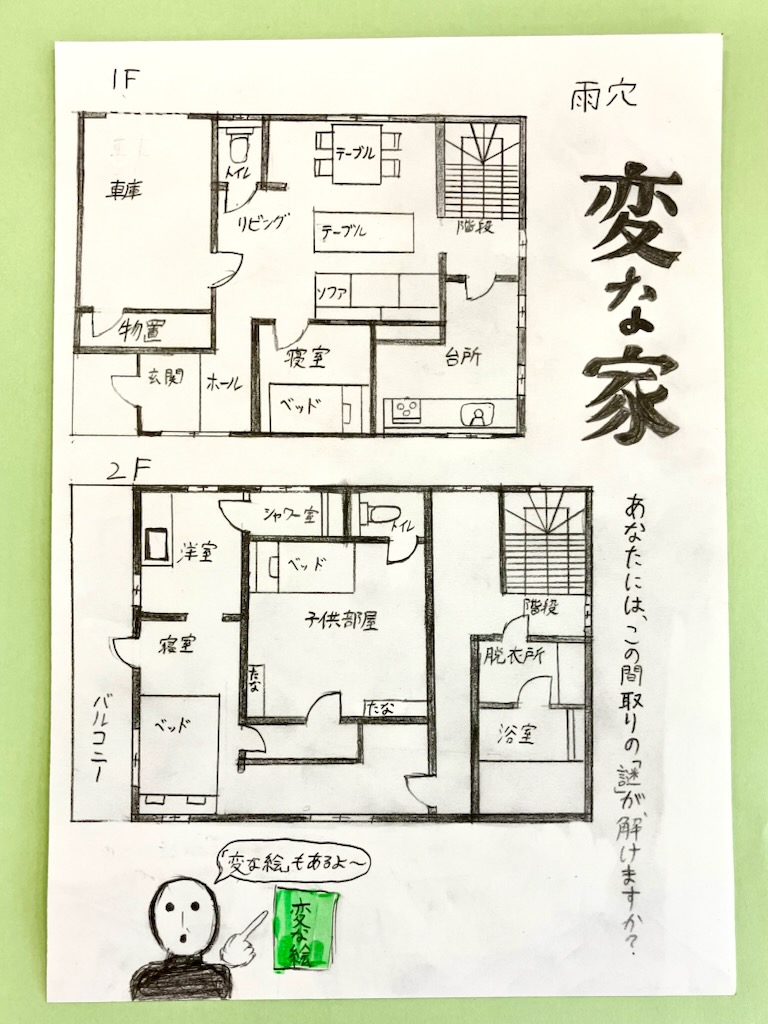 1F
雨穴
変な家
車庫
トイレ
テーブル
リビング
テーブル
階段
ソファ
物置
寝室
台所
玄関
ホール
ベッド
2F
あなたには、この間取りの「謎」が、解けますか?
シャワー室
トイレ
洋室
ベッド
子供部屋
階段
寝室
脱衣所
たな
たな
バルコニー
ベッド
浴室
「変な絵」もあるよ〜
変な絵